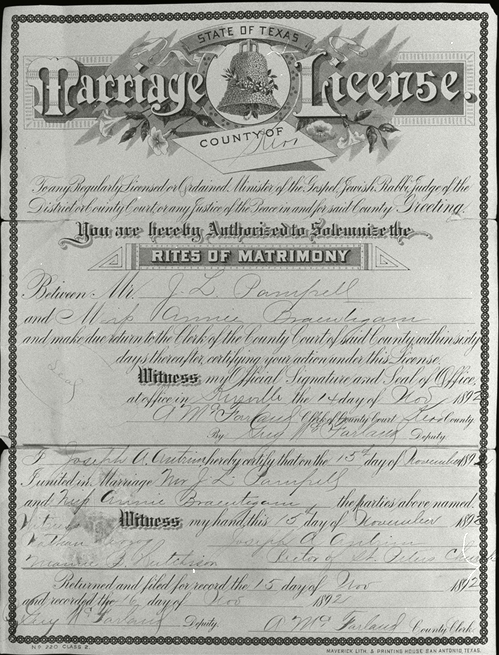 STATE OF TEXAS
Marriage License.
COUNTY OF Kerr
To any Regularly Licensed or Ordained Minister of the Gospel, Jewish Rabbi, Judge of the
District or County Court, or any Justice of the Peace in and for said County Greeting.
You are hereby Authorized to Solemnize the
RITES OF MATRIMONY
Between Mr. J. L. Pampell
and Miss Annie Braeutigam
and make due return to the Clerk of the County Court of said County, within sixty
days thereafter, certifying your action under this License.
Seal
Witness my Official Signature and Seal of Office,
at office in Kerrville the 14 day of Nov 1892
A McFarland Clerk of County Court Kerr County.
By McFarland Deputy
I, Joseph A. Antrim hereby certify that on the 15th day of November 1892
I united in Marriage Mr J. L. Pampell
and Miss Annie Braeutigam the parties above named.
Witness my hand, this 15 day of November 1892
Nathan Joseph A Antrim
Mamie Hutchison Rector of St. Peters
Returned and filed for record the 15 day of Nov 1892
and recorded the 16 day of Nov 1892
McFarland Deputy. A McFarland County Clerk
NO. 220 CLASS 2.
MAVERICK LITH. & PRINTING HOUSE SAN ANTONIO, TEXAS.